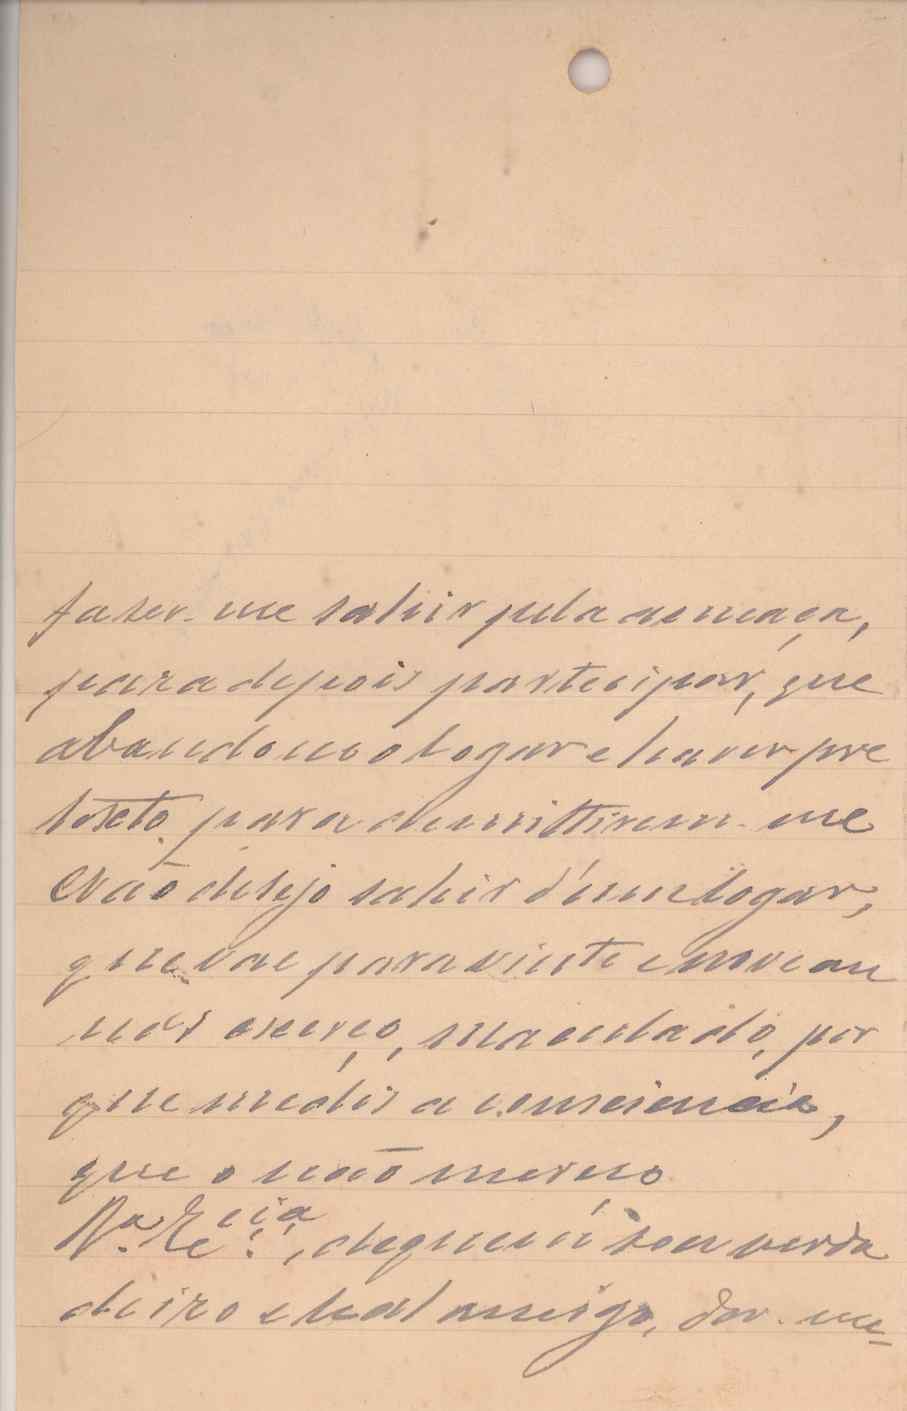 faser-me sahir pela ameaça,
para depois partecipar, que
abandono o logar e haver pre
testo, para demittirem-me
Não desejo sahir d'um logar,
que vae para vinte e nove an
nos exerço, maculado, por
que me dis a consciencia,
que o não mereço
V.ª Ex.cia, de quem sou verda
deiro e leal amigo, dar-me-